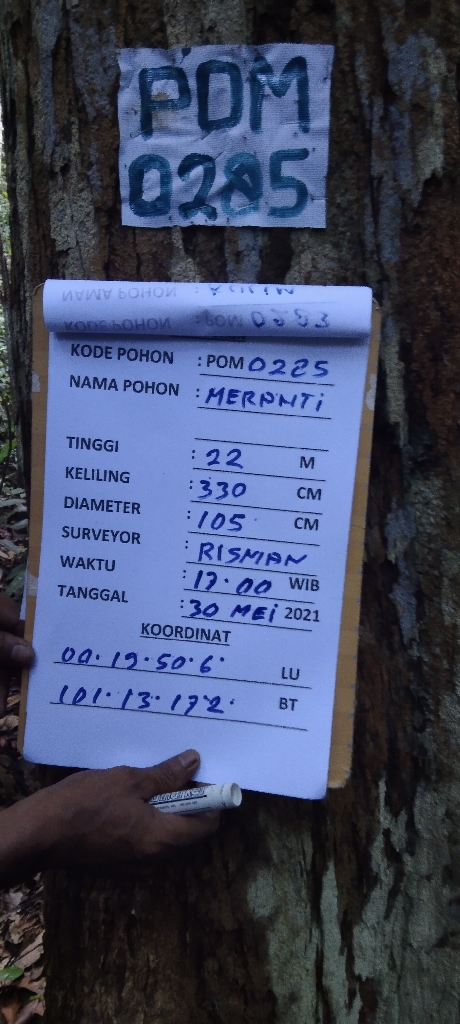 POM
0285
NAMA POHON :
KODE POHON : POM 0283
KODE POHON : POM 0285
NAMA POHON : MERANTi
TINGGI : 22 M
KELILING : 330 CM
DIAMETER : 105 CM
SURVEYOR : RISMAN
WAKTU : 17.00 WIB
TANGGAL : 30 MEi 2021
KOORDINAT
00.19.50.6. LU
101.13.172. BT